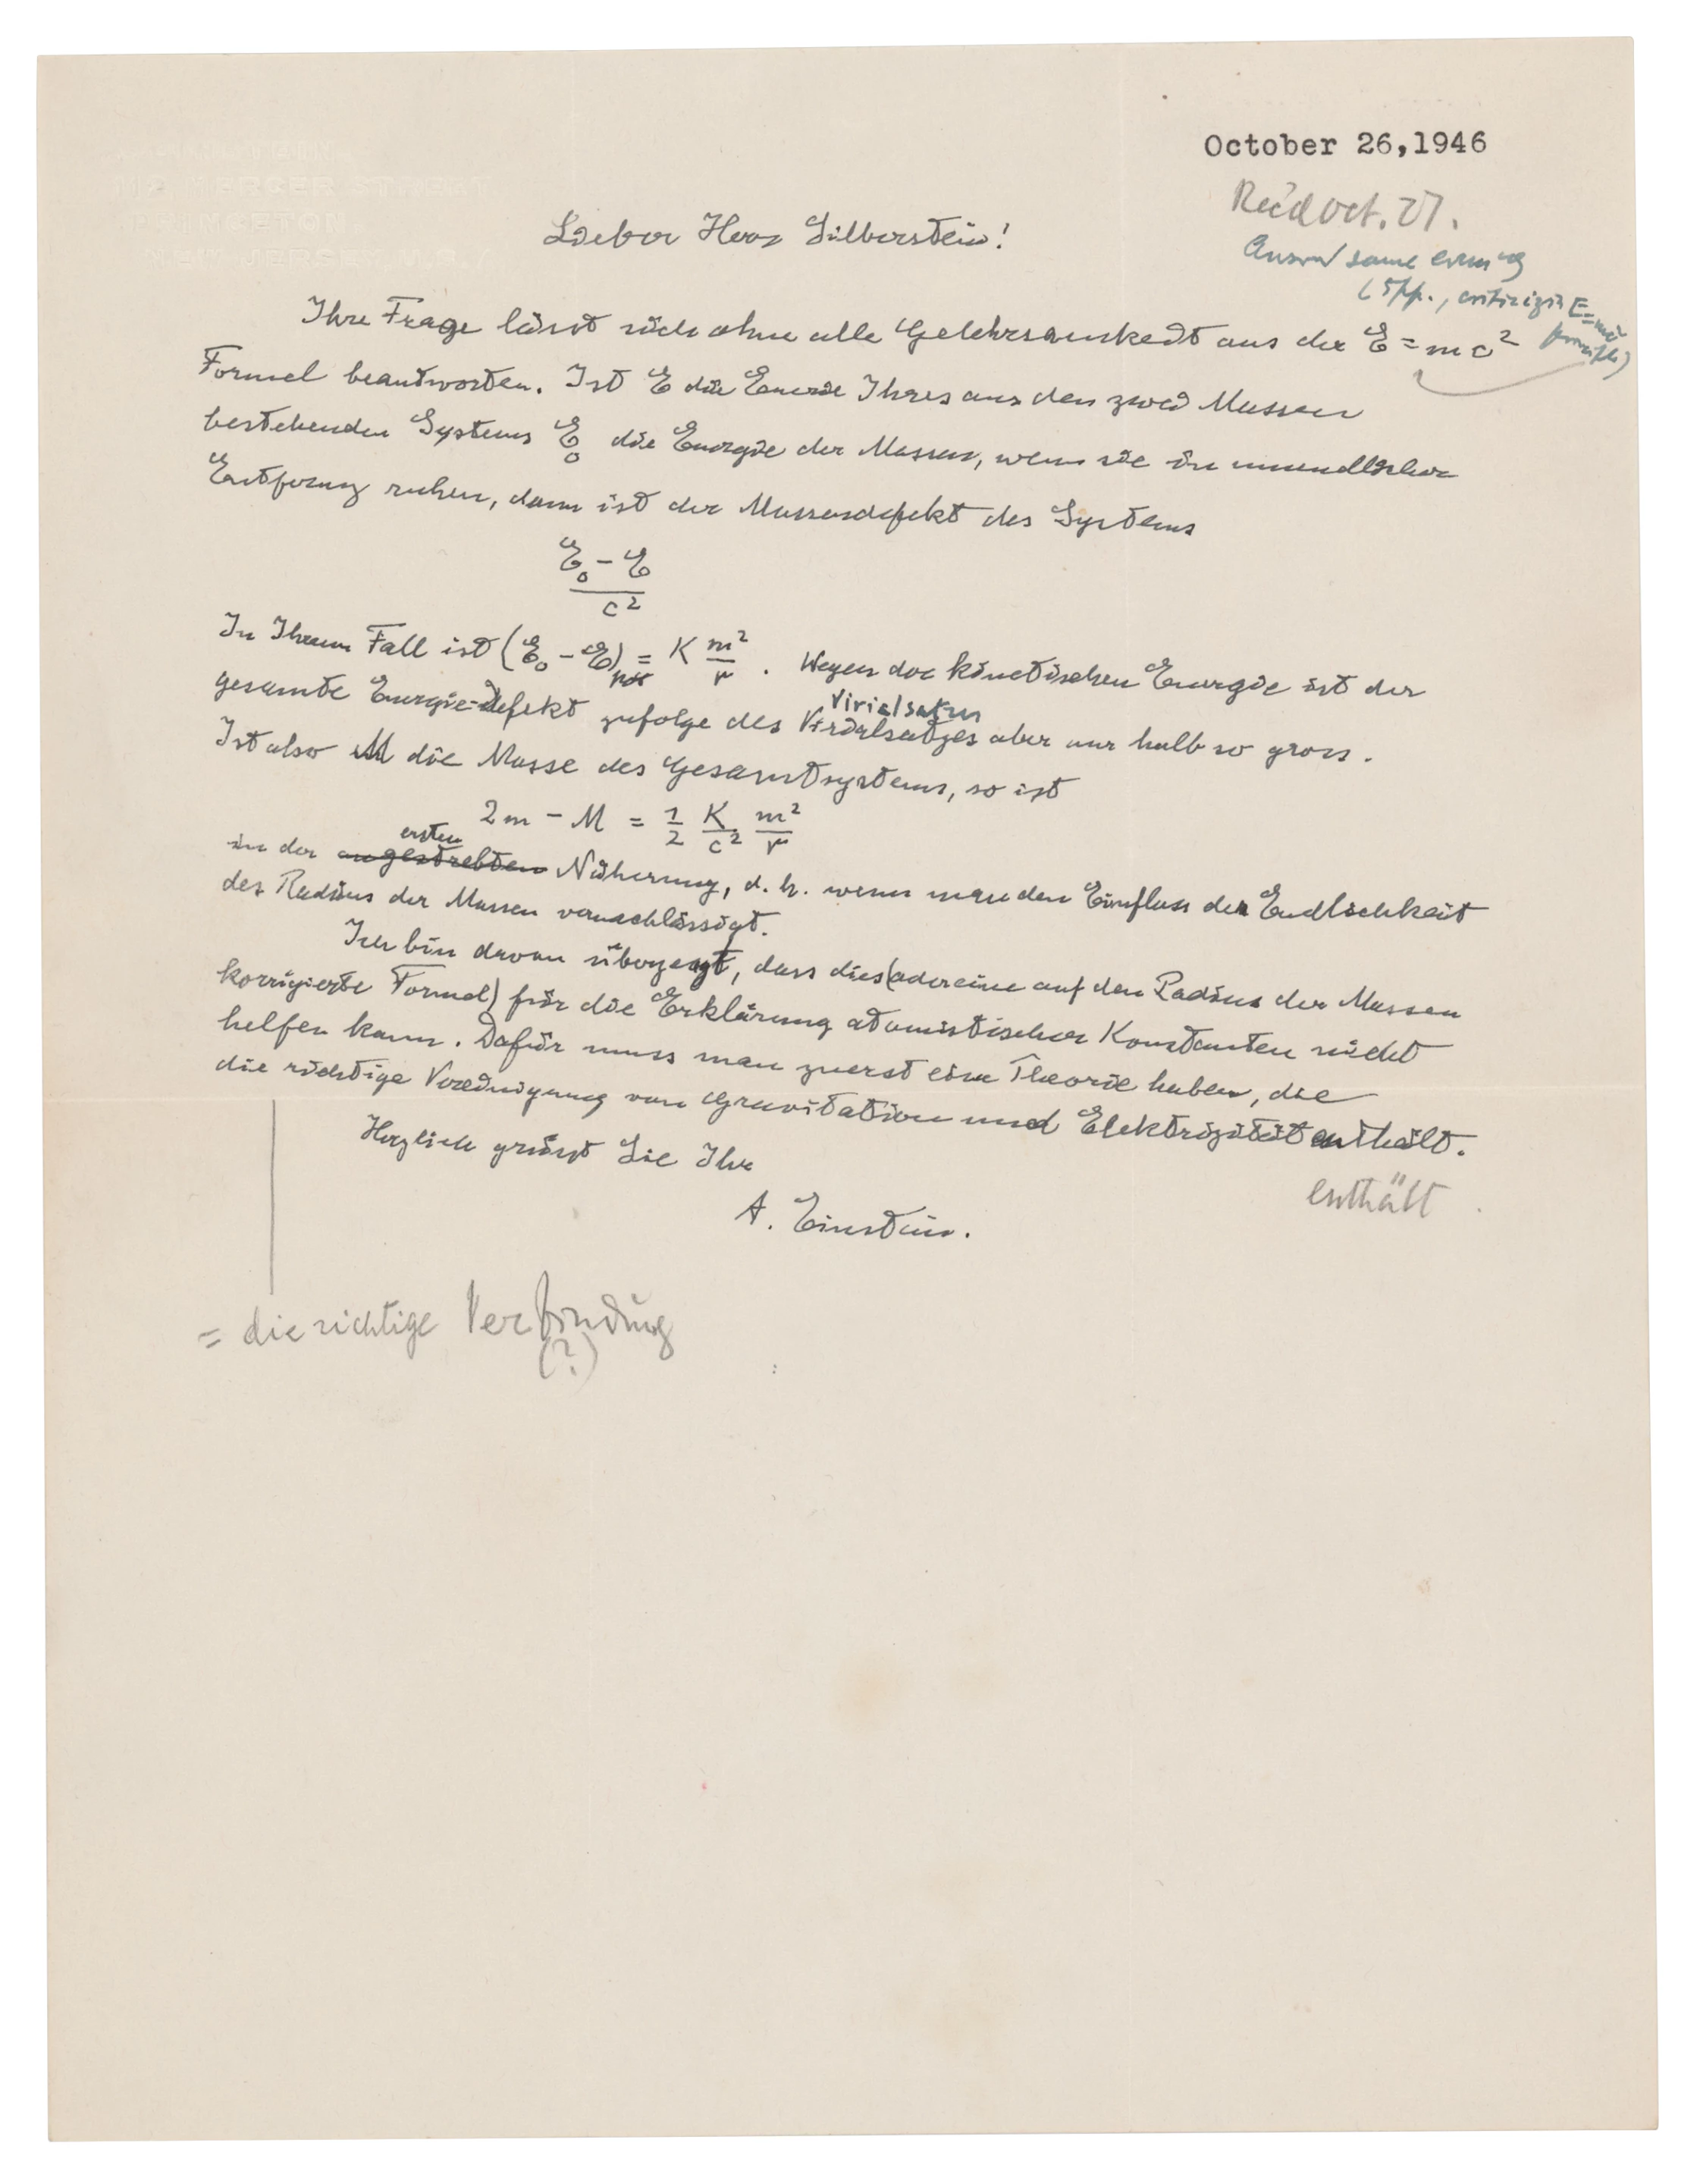 112 MERCER STREET
PRINCETON
NEW JERSEY, U.S.A.
October 26,1946
Rec'd Oct. 27.
Answ'd same evening
(5pp., criticizing E=mc²
principle)
Lieber Herr Silberstein!
Ihre Frage lässt sich ohne alle Gelehrsamkeit aus der E = mc²
Formel beantworten. Ist E die Energie Ihres aus den zwei Massen
bestehenden Systems E₀ die Energie der Massen, wenn sie in unendlicher
Entfernung ruhen, dann ist der Massendefekt des Systems
E₀ - E
c²
In Ihrem Fall ist (E₀ - E) = K m²/r . Wegen der kinetischen Energie ist der
Virialsatzes
gesamte Energie-Defekt zufolge des Virialsatzes aber nur halb so gross.
Ist also M die Masse des Gesamtsystems, so ist
2m - M = 1/2 K/c² m²/r
ersten
in der angestrebten Näherung, d. h. wenn man den Einfluss der Endlichkeit
des Radius der Massen vernachlässigt.
Ich bin davon überzeugt, dass dies (oder eine auf den Radius der Massen
korrigierte Formel) für die Erklärung atomistischer Konstanten nicht
helfen kann. Dafür muss man zuerst eine Theorie haben, die
die richtige Vereinigung von Gravitation und Elektrizität enthält.
enthält
Herzlich grüsst Sie Ihr
A. Einstein.
= die richtige Verbindung
(?)